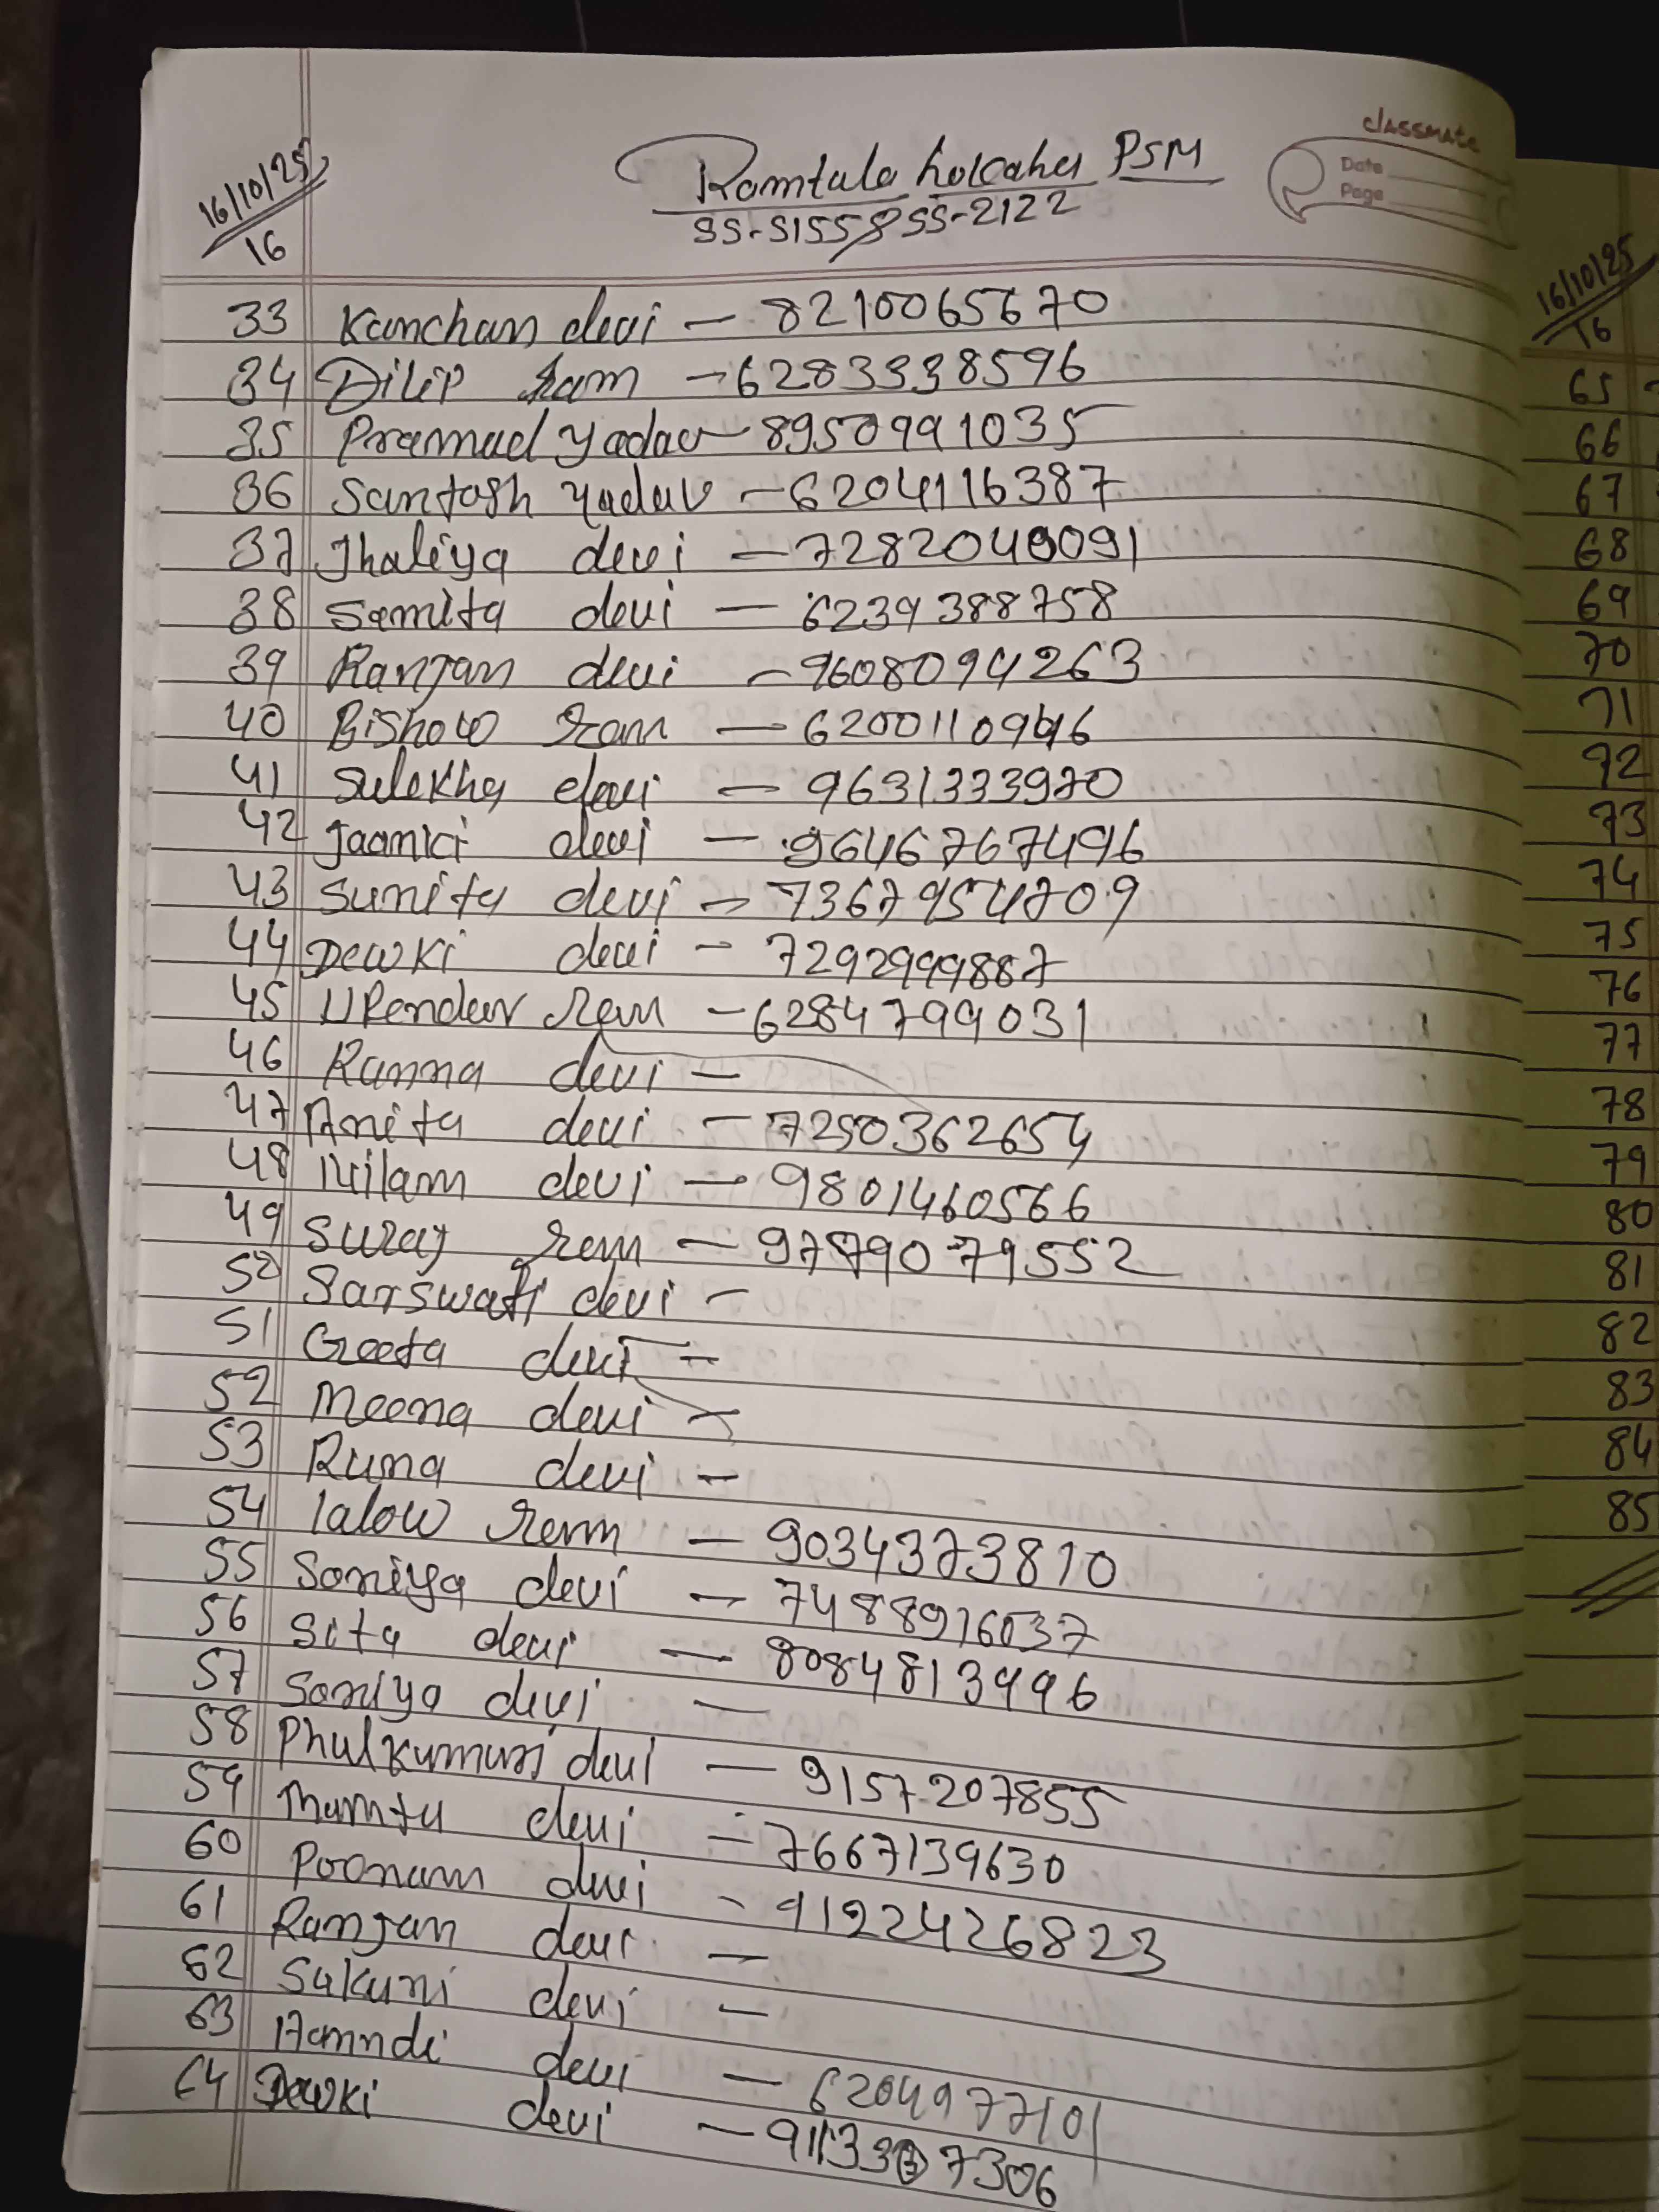 classmate
Date
Page
16/10/25
16
Ramtula holcaha PSM
SS-S1558SS-2122
33 Kanchan devi - 8210065670
34 Dilip ram - 6283338596
35 Pramad yadav - 8950991035
36 Santosh yadav - 6204116387
37 Jhaliya devi - 7282040091
38 Samita devi - 6239388758
39 Ranjan devi - 9608094263
40 Bishow ram - 6200110946
41 Sulekha devi - 9631333970
42 Jaanki devi - 9646767496
43 Sunita devi - 7367954709
44 Dewki devi - 7292999887
45 Upender ram - 6284799031
46 Ranna devi -
47 Anita devi - 7250362654
48 Nilam devi - 9801460566
49 Suraj ram - 9779079552
50 Sarswati devi -
51 Geeta devi -
52 Meena devi -
53 Runa devi -
54 lalow ram - 9034373810
55 Soniya devi - 7488916037
56 Sita devi - 8084813996
57 Soniya devi -
58 Phulkumari devi - 9157207855
59 Mamta devi - 7667139630
60 Poonam devi - 9122426823
61 Ranjan devi -
62 Sakuni devi -
63 Aanndi devi - 6204977101
64 Dewki devi - 9113337306
16/10/25
16
65
66
67
68
69
70
71
72
73
74
75
76
77
78
79
80
81
82
83
84
85